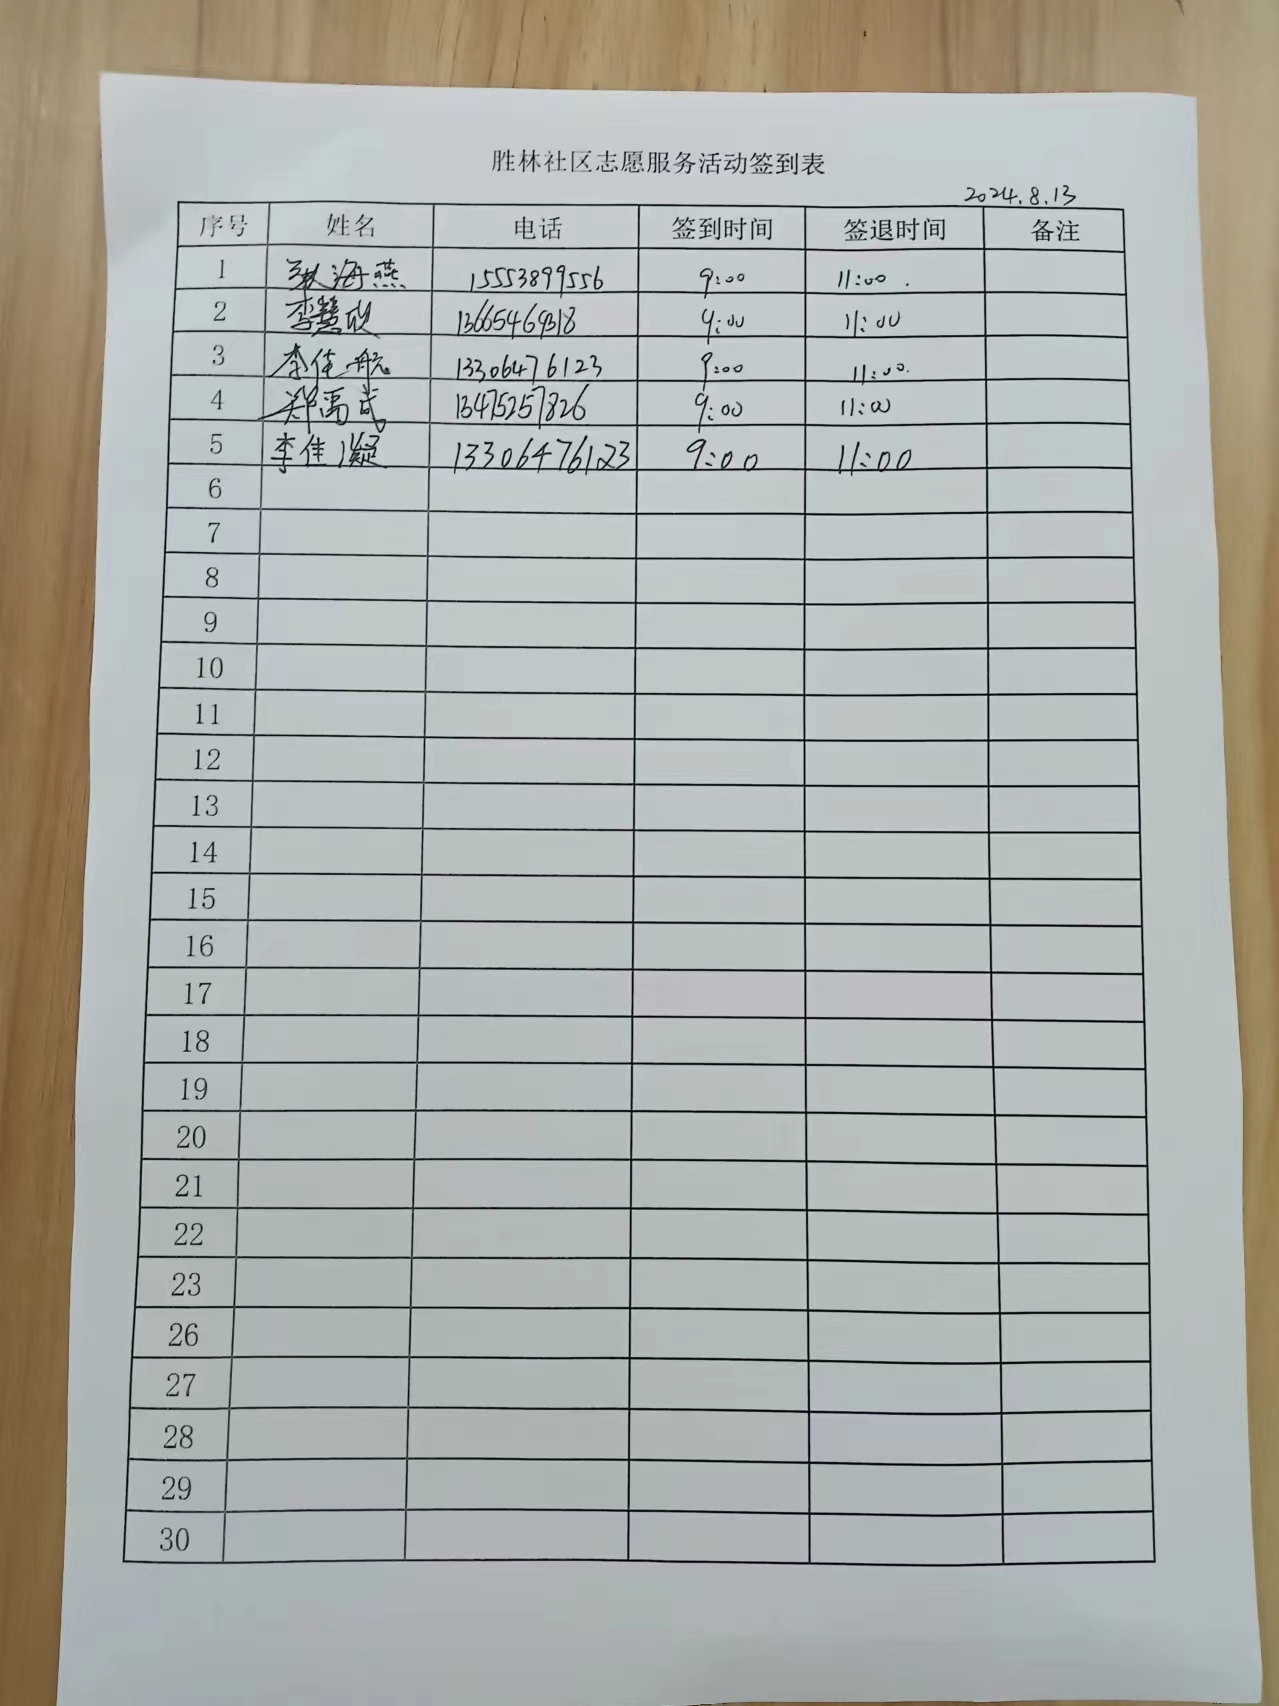 胜林社区志愿服务活动签到表
2024.8.13
序号 姓名 电话 签到时间 签退时间 备注
1 海燕 15553899556 9:00 11:00.
2 李慧欣 13665469318 9:00 11:00
3 李佳航 13306476123 9:00 11:00.
4 郑禹武 13475257826 9:00 11:00
5 李佳凝 13306476123 9:00 11:00
6
7
8
9
10
11
12
13
14
15
16
17
18
19
20
21
22
23
26
27
28
29
30